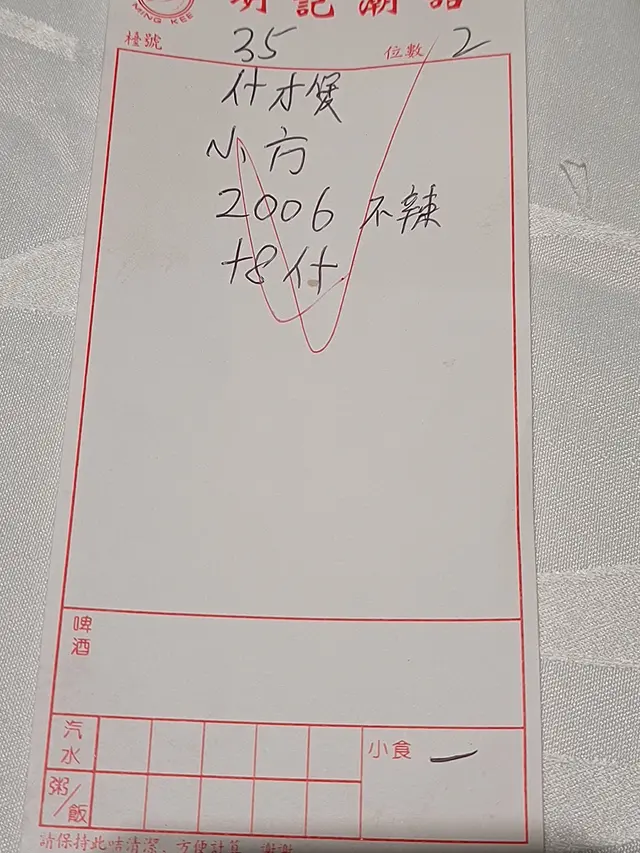 MING KEE
記潮
檯號 35 位數 2
什才煲
小方
2006 不辣
+8 什
啤酒
汽水
小食 一
粥/飯
請保持此咭清潔，方便計算，謝謝